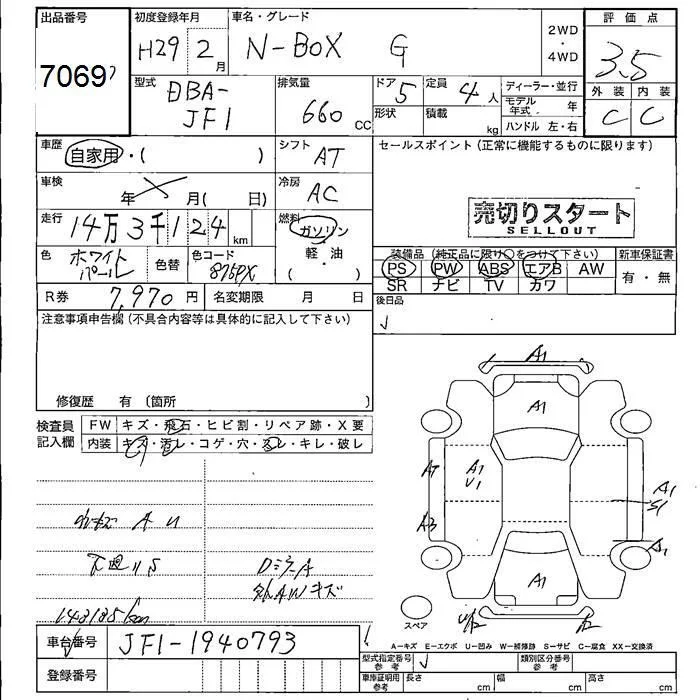 出品番号 初度登録年月 車名・グレード 評価点
7069 H29 2月 N-BOX G 2WD・4WD 3.5
外装 内装
C C
型式 DBA-JF1 排気量 660 CC ドア 5 定員 4人 ディーラー・並行
形状 積載 kg モデル年式 年
ハンドル 左・右
車歴 自家用・( ) シフト AT セールスポイント (正常に機能するものに限ります)
車検 年 月( 日) 冷房 AC
売切りスタート
SELLOUT
走行 14万3千124km 燃料 ガソリン
軽・油
・( )
色 ホワイトパール 色替 色コード 875PX
装備品 (純正品に限り○をつけて下さい) 新車保証書
PS PW ABS エアB AW 有・無
SR ナビ TV カワ
R券 7,970円 名変期限 月 日 後日品
注意事項申告欄 (不具合内容等は具体的に記入して下さい)
修復歴 有 (箇所 )
検査員記入欄 FW キズ・飛石・ヒビ割・リペア跡・X要
内装 キズ・汚レ・コゲ・穴・スレ・キレ・破レ
A1
A1
A1
U1
A1
S1
A1
A1
A U
下廻りS
DミラーA
AWキズ
143185km
スペア
車台番号 JF1-1940793
A―キズ E―エクボ U―凹み W―補修跡 S―サビ C―腐食 XX―交換済
登録番号
型式指定番号 参考 類別区分番号 参考
車庫証明用 参考 長さ cm 幅 cm 高さ cm